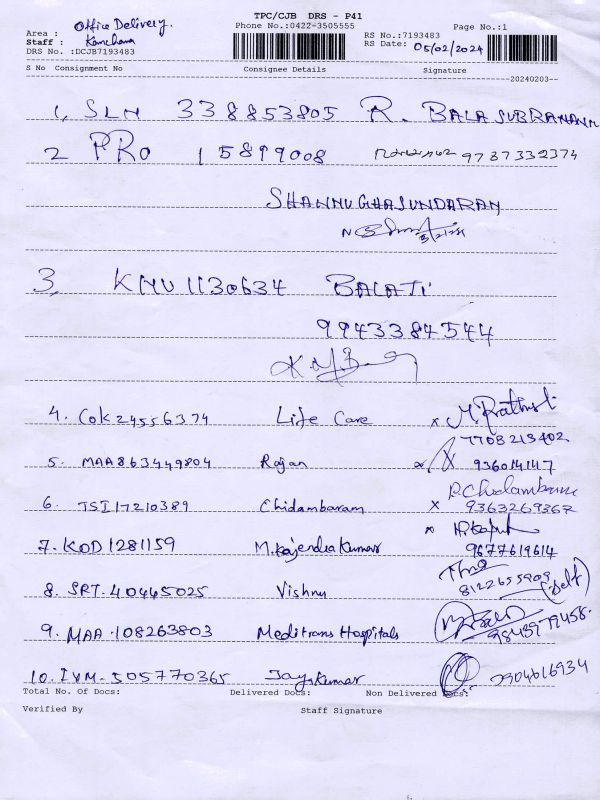 TPC/CJB DRS - P41
Area : Office Delivery. Phone No.:0422-3505555 Page No.:1
Staff : Kanchana RS No.:7193483
DRS No. :DCJB7193483 RS Date: 05/02/2024
S No Consignment No Consignee Details Signature
20240203
1, SLM 338853805 R. BALASUBRAMANM
2 PRO 15899008 9787332374
SHANMUGHASUNDARAN
3, KMU 1130634 BALAJI
9943384544
4. COK 24556374 Life Care x M. Prathush
7708213402
5. MAA 863449804 Rajan 936014147
6. TSI 17210389 Chidambaram x P. Chidambaram
9363269367
7. KOD 1281159 M. Rajendra Kumar 9677619614
8. SRT. 40465025 Vishnu 8122655909 (Self)
9. MAA. 108263803 Meditrans Hospitals 9843979458.
10. IVM. 505770365 Jayakumar 9904616934
Total No. Of Docs: Delivered Docs: Non Delivered Docs:
Verified By Staff Signature